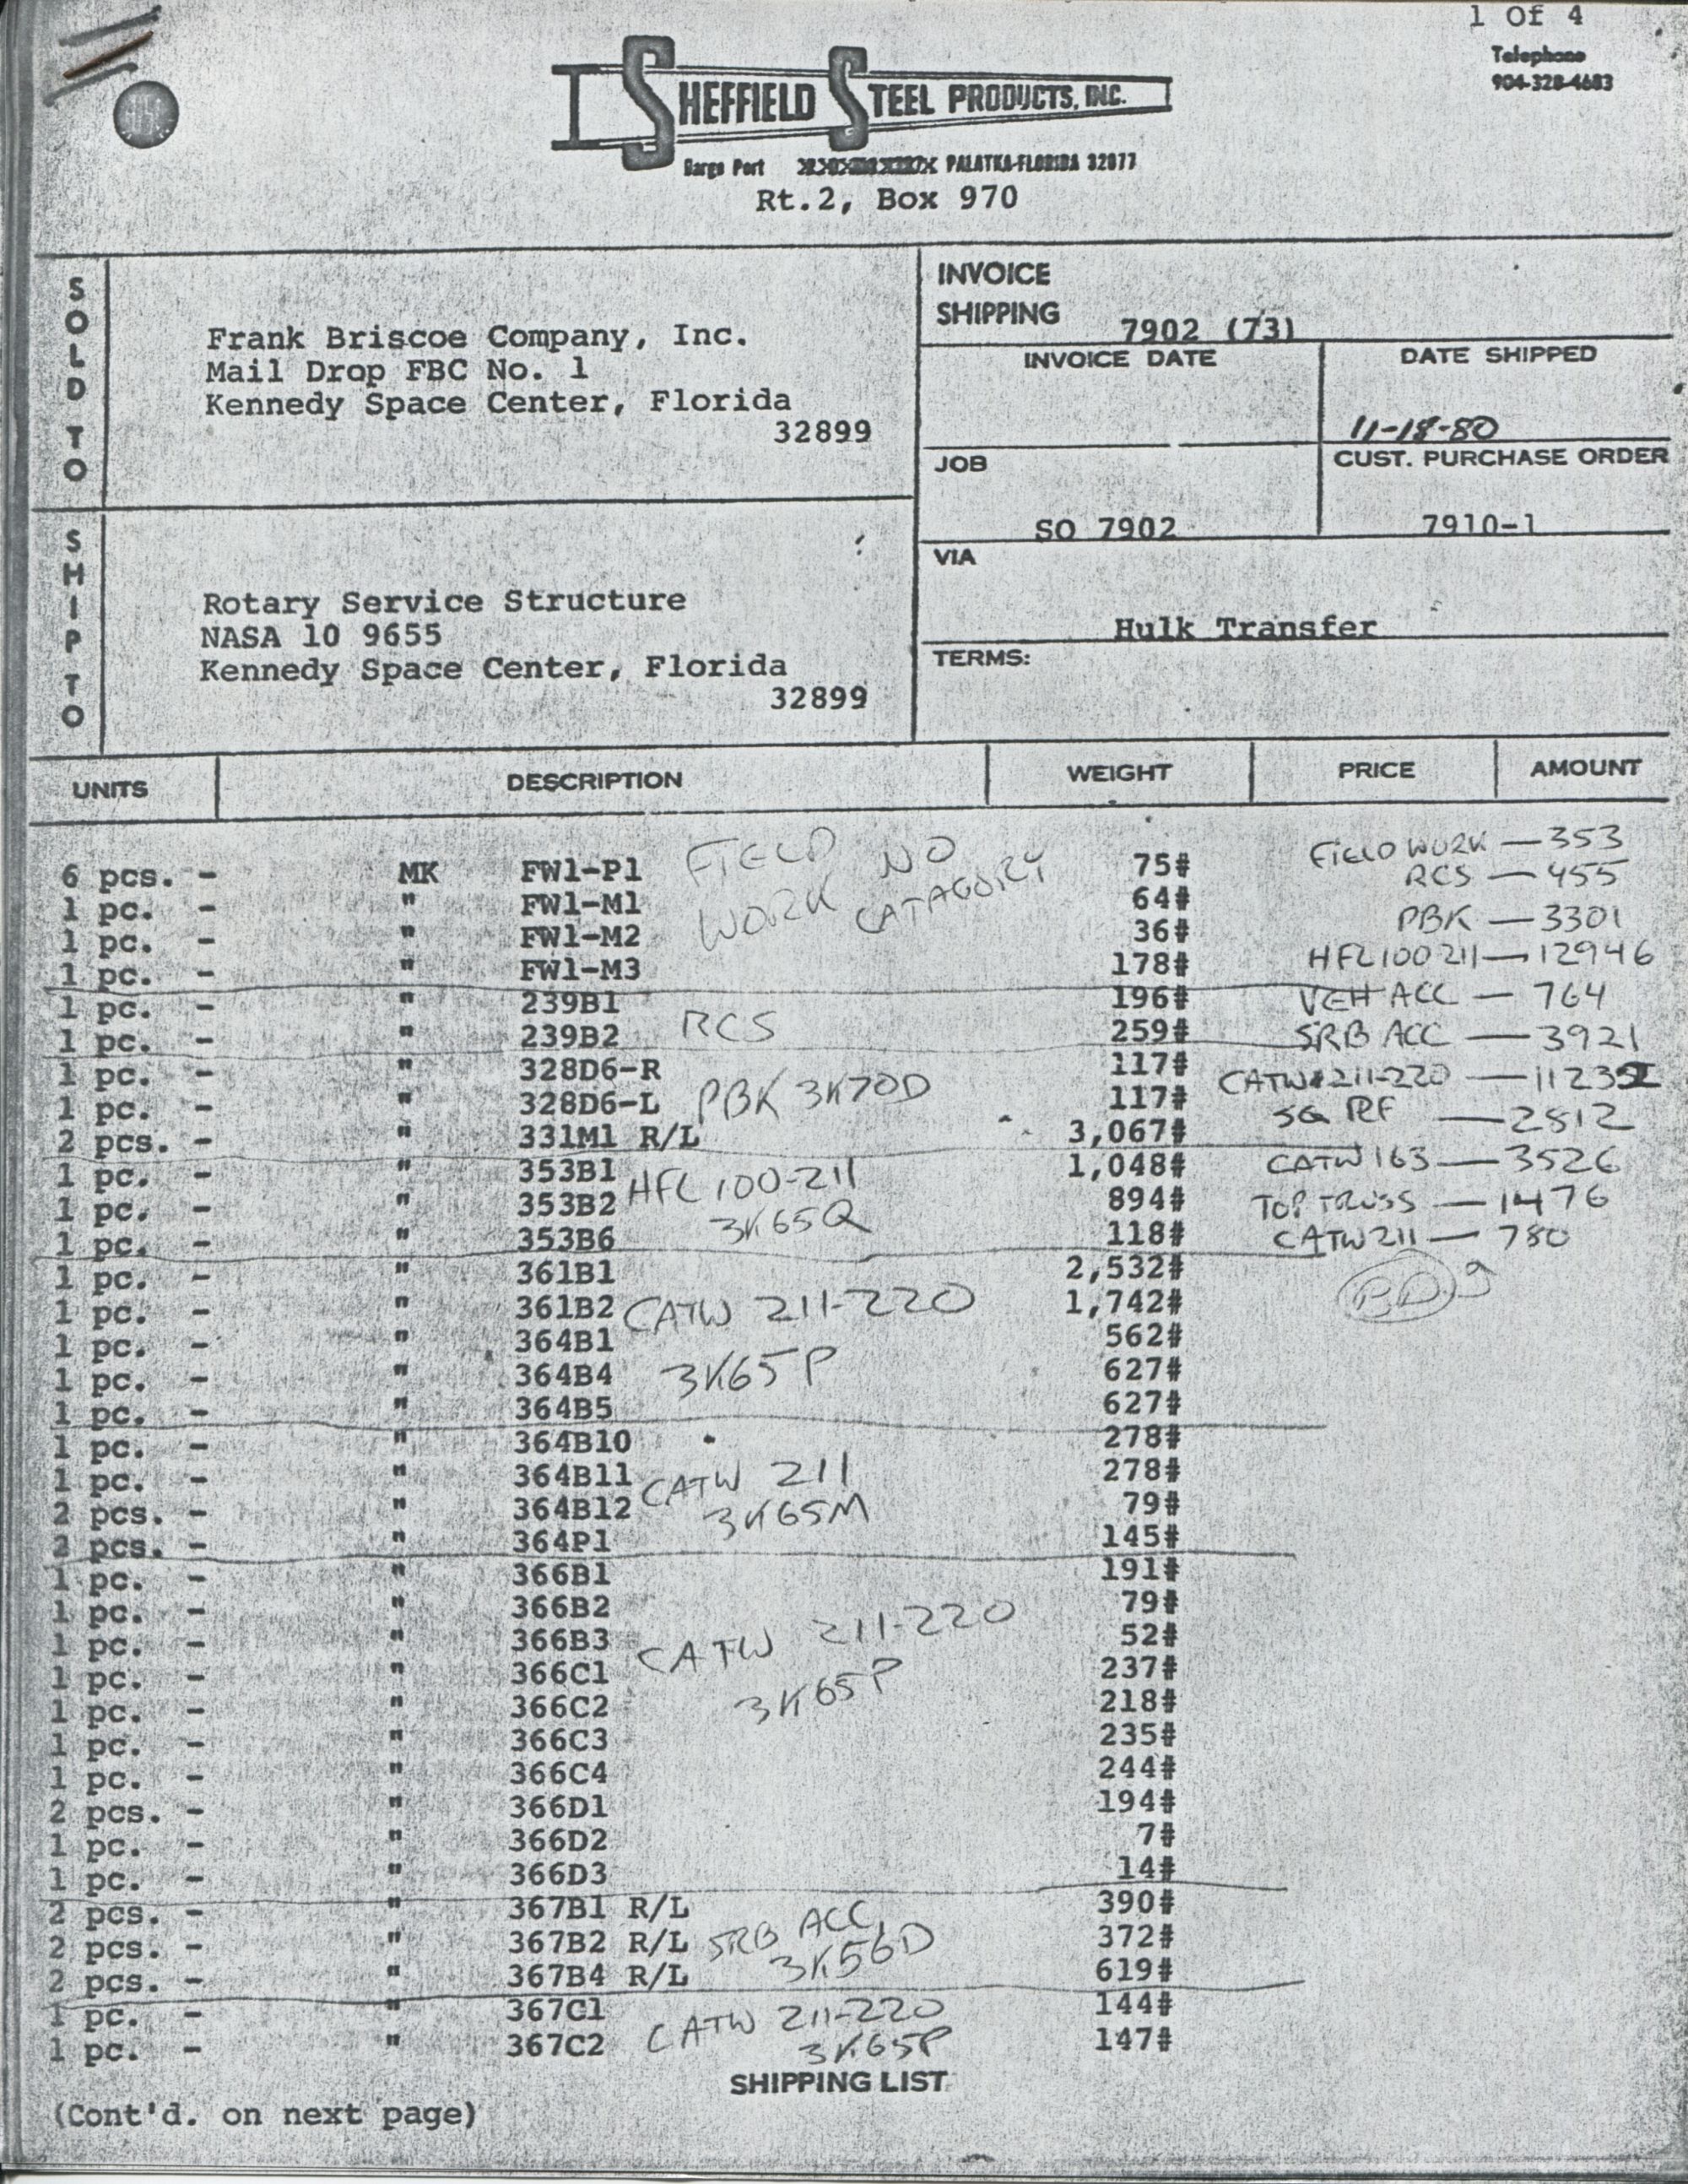 1 Of 4
Telephone
904-328-4683
SHEFFIELD STEEL PRODUCTS, INC.
Barge Port PALATKA-FLORIDA 32077
Rt.2, Box 970
SOLD TO
Frank Briscoe Company, Inc.
Mail Drop FBC No. 1
Kennedy Space Center, Florida
32899
INVOICE
SHIPPING 7902 (73)
INVOICE DATE DATE SHIPPED
11-18-80
JOB CUST. PURCHASE ORDER
SO 7902 7910-1
SHIP TO
Rotary Service Structure
NASA 10 9655
Kennedy Space Center, Florida
32899
VIA
Hulk Transfer
TERMS:
UNITS DESCRIPTION WEIGHT PRICE AMOUNT
FIELD WORK NO CATAGORY
6 pcs. - MK FW1-P1 75#
1 pc. - " FW1-M1 64#
1 pc. - " FW1-M2 36#
1 pc. - " FW1-M3 178#
1 pc. - " 239B1 196#
1 pc. - " 239B2 RCS 259#
1 pc. - " 328D6-R 117#
1 pc. - " 328D6-L PBK 3K70D 117#
2 pcs. - " 331M1 R/L 3,067#
1 pc. - " 353B1 HFL 100-211 1,048#
1 pc. - " 353B2 3K65Q 894#
1 pc. - " 353B6 118#
1 pc. - " 361B1 2,532#
1 pc. - " 361B2 CATW 211-220 1,742#
1 pc. - " 364B1 562#
1 pc. - " 364B4 3K65P 627#
1 pc. - " 364B5 627#
1 pc. - " 364B10 278#
1 pc. - " 364B11 CATW 211 278#
2 pcs. - " 364B12 3K65M 79#
2 pcs. - " 364P1 145#
1 pc. - " 366B1 191#
1 pc. - " 366B2 79#
1 pc. - " 366B3 CATW 211-220 52#
1 pc. - " 366C1 3K65P 237#
1 pc. - " 366C2 218#
1 pc. - " 366C3 235#
1 pc. - " 366C4 244#
2 pcs. - " 366D1 194#
1 pc. - " 366D2 7#
1 pc. - " 366D3 14#
2 pcs. - " 367B1 R/L 390#
2 pcs. - " 367B2 R/L SRB ACC, 372#
2 pcs. - " 367B4 R/L 3K56D 619#
1 pc. - " 367C1 CATW 211-220 144#
1 pc. - " 367C2 3K65P 147#
FIELD WORK — 353
RCS — 455
PBK — 3301
HFL100 211 — 12946
VEH ACC — 764
SRB ACC — 3921
CATW 211-220 —
SQ RF — 2812
CATW 163 — 3526
TOP TRUSS — 1476
CATW 211 — 780
SHIPPING LIST
(Cont'd. on next page)